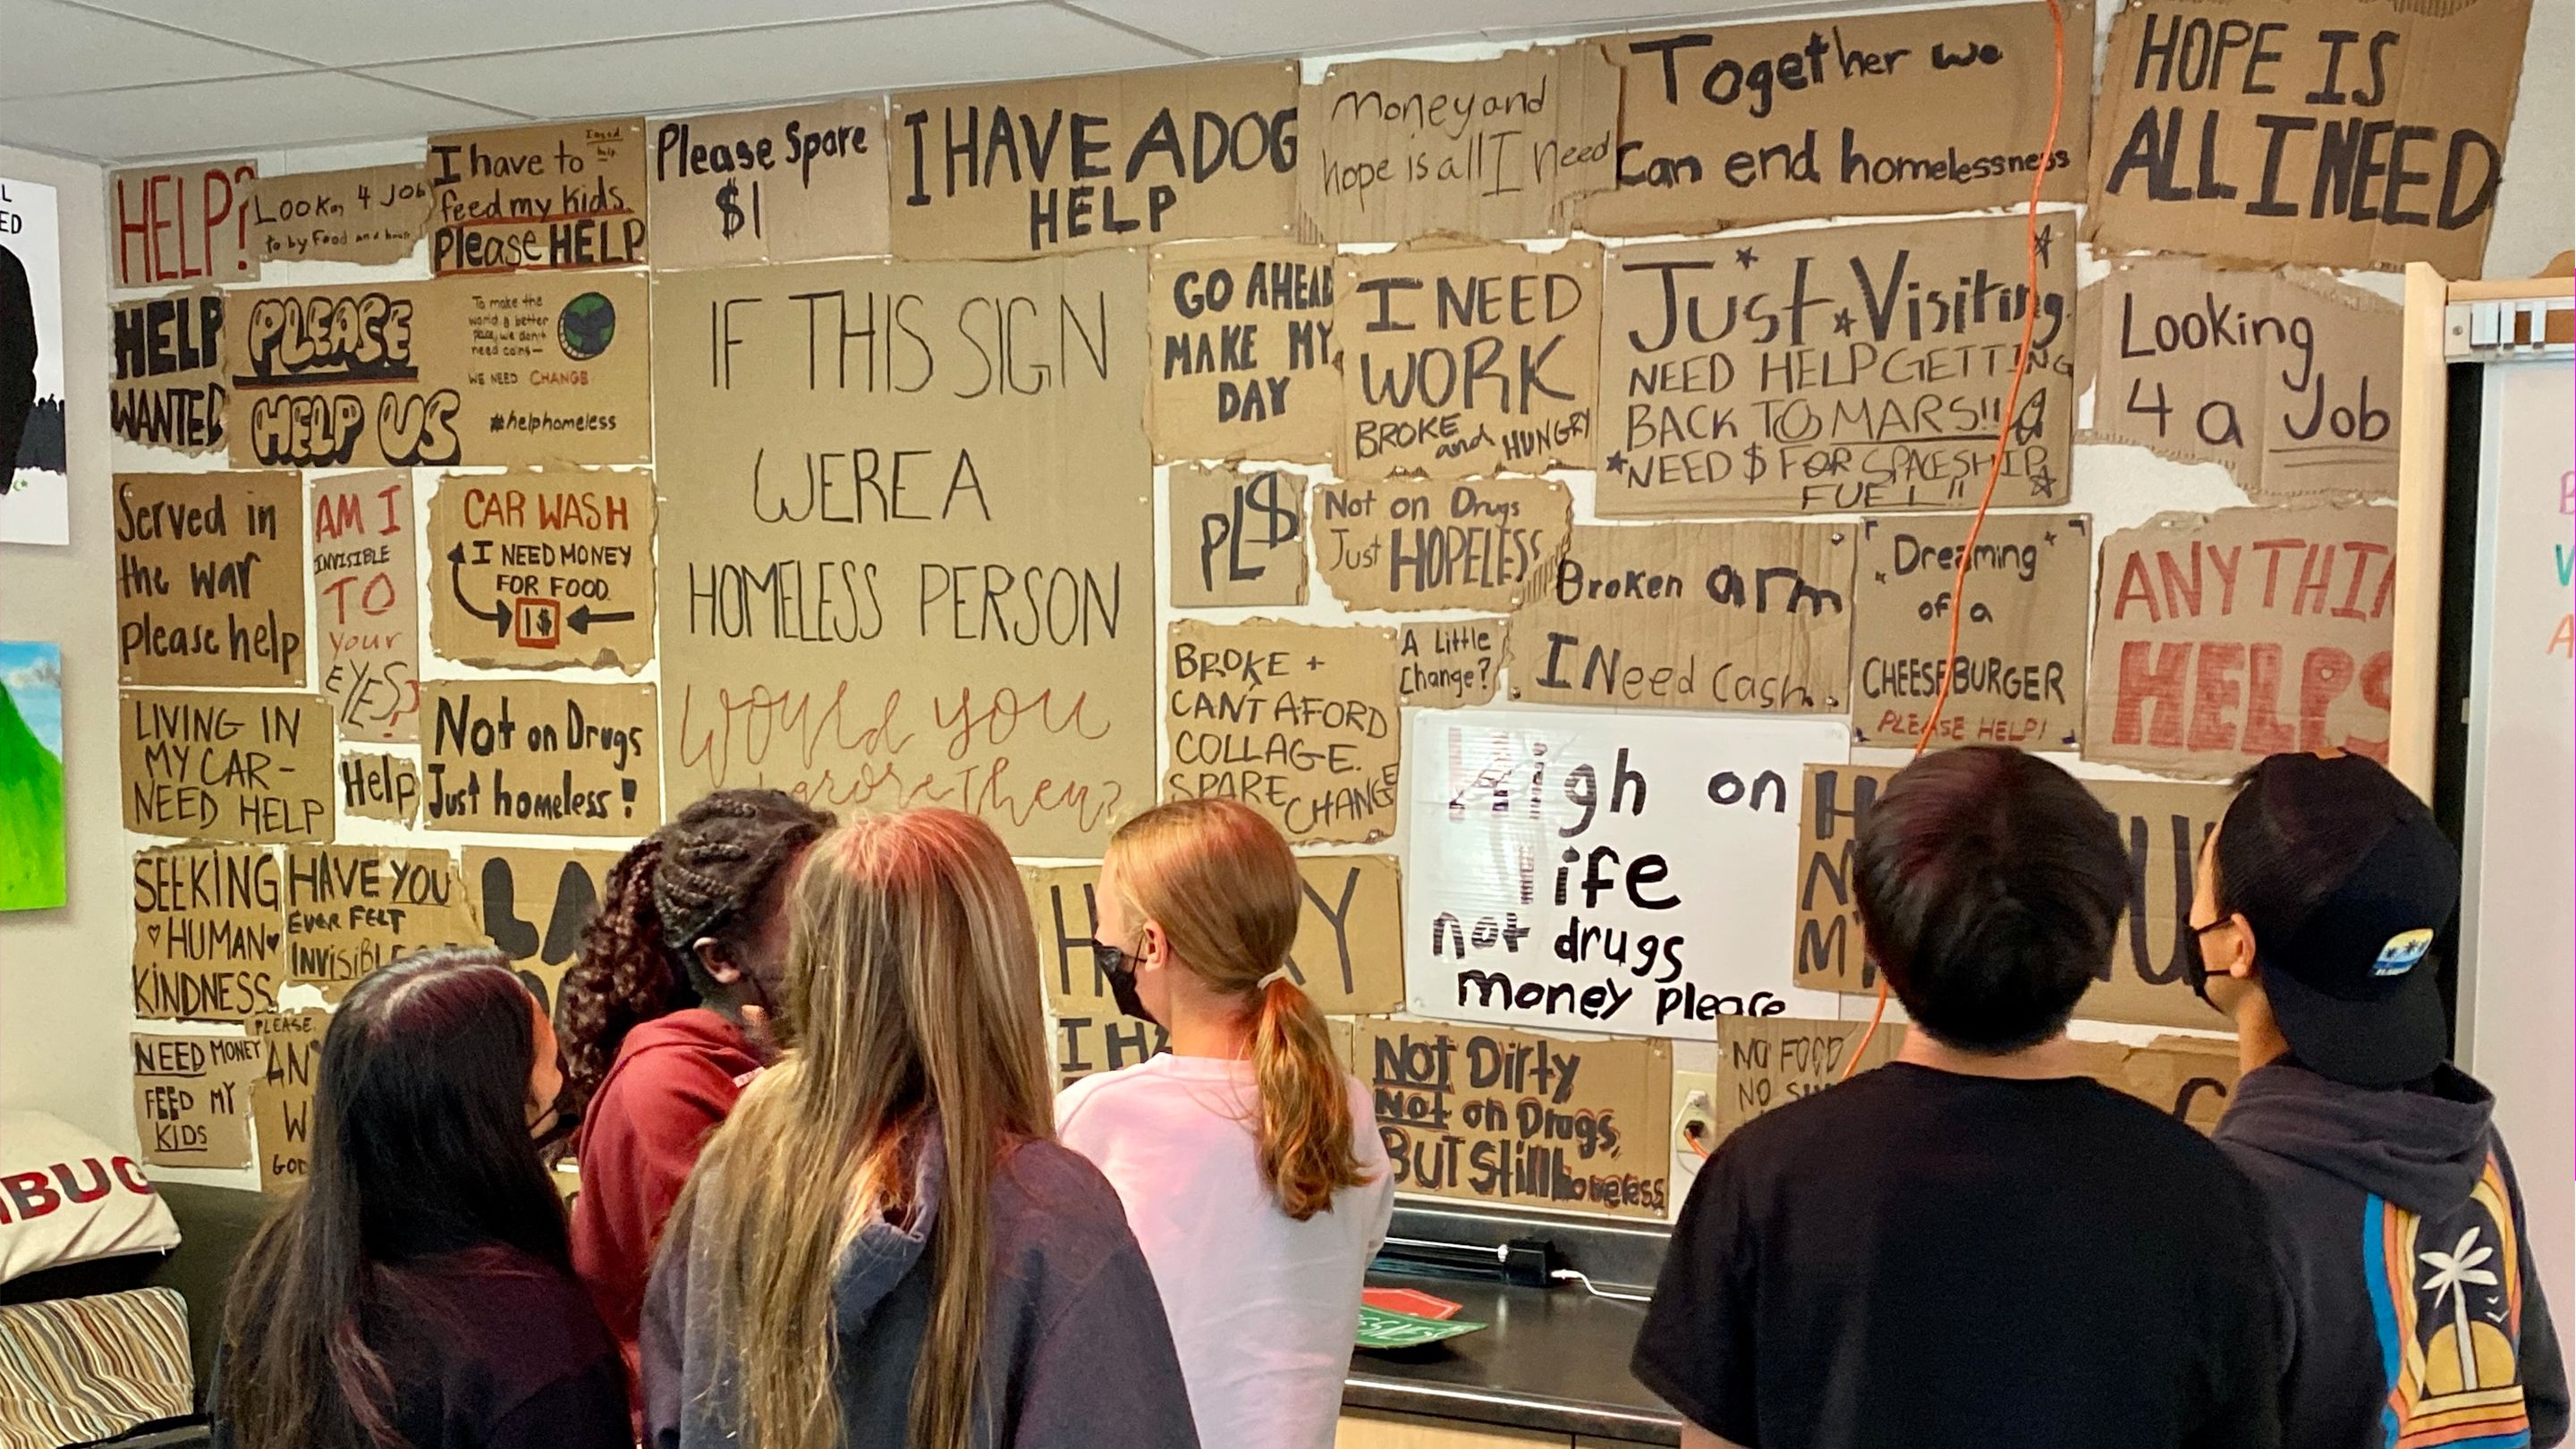 HELP?
Lookn 4 Job
to by Food and house
I need
help
I have to
feed my kids
Please HELP
Please Spare
$1
I HAVE A DOG
HELP
Money and
hope is all I need
Together we
Can end homelessness
HOPE IS
ALL I NEED
HELP
WANTED
PLEASE
HELP US
To make the
world a better
place, we don't
need coins—
WE NEED CHANGE
#helphomeless
IF THIS SIGN
WERE A
HOMELESS PERSON
Would you
ignore them?
GO AHEAD
MAKE MY
DAY
I NEED
WORK
BROKE
and HUNGRY
Just Visiting
NEED HELP GETTING
BACK TO MARS!!
NEED $ FOR SPACESHIP
FUEL!!
Looking
4 a Job
Served in
the war
please help
AM I
INVISIBLE
TO
your
EYES?
CAR WASH
I NEED MONEY
FOR FOOD
1$
PL$
Not on Drugs
Just HOPELESS
Broken arm
I Need Cash
Dreaming
of a
CHEESEBURGER
PLEASE HELP!
ANYTHIN
HELPS
LIVING IN
MY CAR-
NEED HELP
Help
Not on Drugs
Just homeless!
BROKE +
CAN'T AFORD
COLLAGE.
SPARE
CHANGE
A Little
Change?
High on
life
not drugs
money please
SEEKING
HUMAN
KINDNESS
HAVE YOU
EVER FELT
INVISIBL
LA
H
Y
I HA
NEED MONEY
FEED MY
KIDS
PLEASE
AN
W
GOD
NOT Dirty
Not on Drugs,
BUT Still homeless
NO FOOD
NO
H
M
MY
U
L
ED
BUG